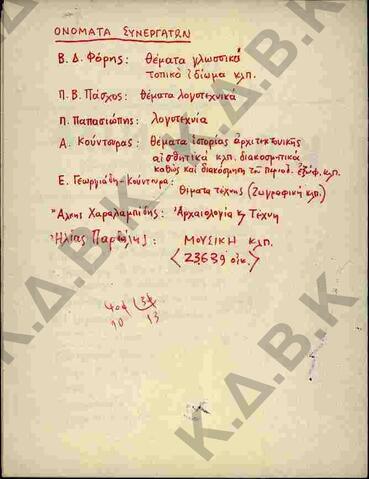 ΟΝΟΜΑΤΑ ΣΥΝΕΡΓΑΤΩΝ
Β. Δ. Φόρης: θέματα γλωσσικά
τοπικό ιδίωμα κ.λ.π.
Π. Β. Πάσχος: θέματα λογοτεχνικά
Π. Παπασιώπης: λογοτεχνία
Α. Κούντουρας: θέματα ιστορίας αρχιτεκτονικής
αισθητικά κ.λ.π. διακοσμητικά
καθώς και διακόσμηση του περιοδ. εξώφ. κ.λ.π.
Ε. Γεωργιάδη-Κούντουρα:
θέματα τέχνης (ζωγραφική κ.λ.π.)
Άλκης Χαραλαμπίδης: Ἀρχαιολογία κ Τέχνη
Ἠλίας : ΜΟΥΣΙΚΗ κ.λ.π.
〈23639 οικ.〉
34
10 13
Κ.Δ.Β.Κ
Κ.Δ.Β.Κ
Κ.Δ.Β.Κ